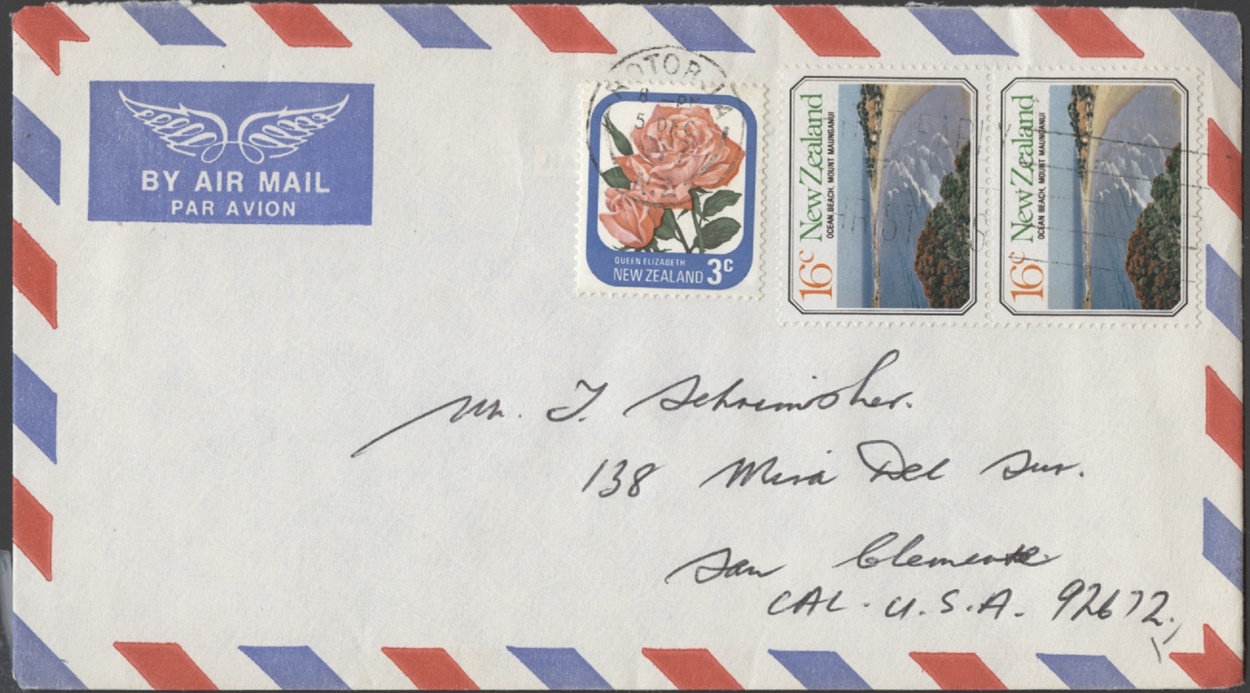 BY AIR MAIL
PAR AVION
8 - PM
5 DEC
QUEEN ELIZABETH
NEW ZEALAND 3c
16c New Zealand
OCEAN BEACH, MOUNT MAUNGANUI
16c New Zealand
OCEAN BEACH, MOUNT MAUNGANUI
Mr. T. Schreinsher.
138 Mira Del Sur.
San Clemente
CAL. U.S.A. 92672.